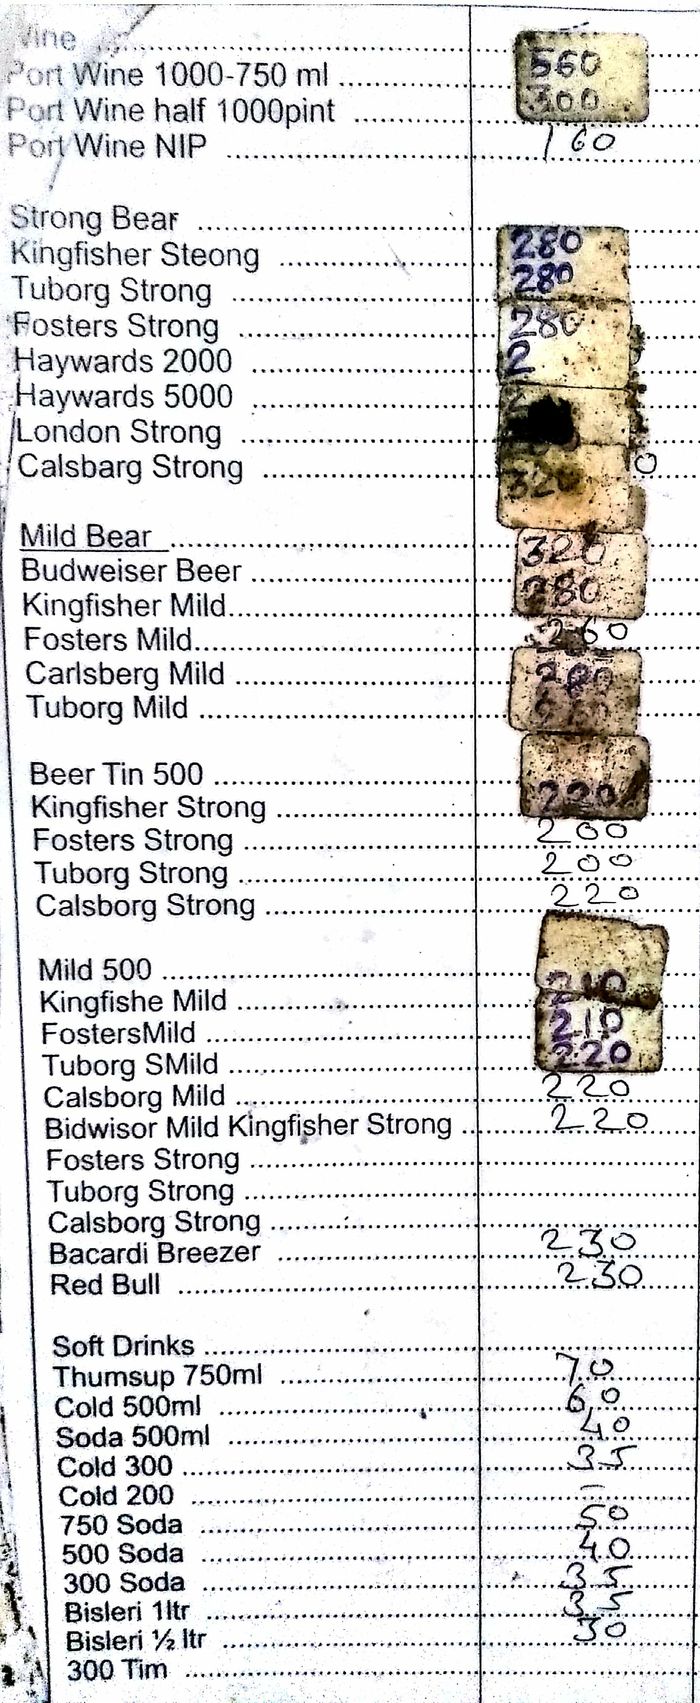 Vine
Port Wine 1000-750 ml 560
Port Wine half 1000pint 300
Port Wine NIP 160
Strong Bear
Kingfisher Steong 280
Tuborg Strong 280
Fosters Strong 280
Haywards 2000 2
Haywards 5000
London Strong
Calsbarg Strong 320 0
Mild Bear
Budweiser Beer 320
Kingfisher Mild 280
Fosters Mild 260
Carlsberg Mild
Tuborg Mild
Beer Tin 500
Kingfisher Strong 220
Fosters Strong 200
Tuborg Strong 200
Calsborg Strong 220
Mild 500
Kingfishe Mild 210
FostersMild 210
Tuborg SMild 220
Calsborg Mild 220
Bidwisor Mild Kingfisher Strong 220
Fosters Strong
Tuborg Strong
Calsborg Strong
Bacardi Breezer 230
Red Bull 230
Soft Drinks
Thumsup 750ml 70
Cold 500ml 60
Soda 500ml 40
Cold 300 35
Cold 200 –
750 Soda 50
500 Soda 40
300 Soda 35
Bisleri 1ltr 35
Bisleri ½ ltr 30
300 Tim